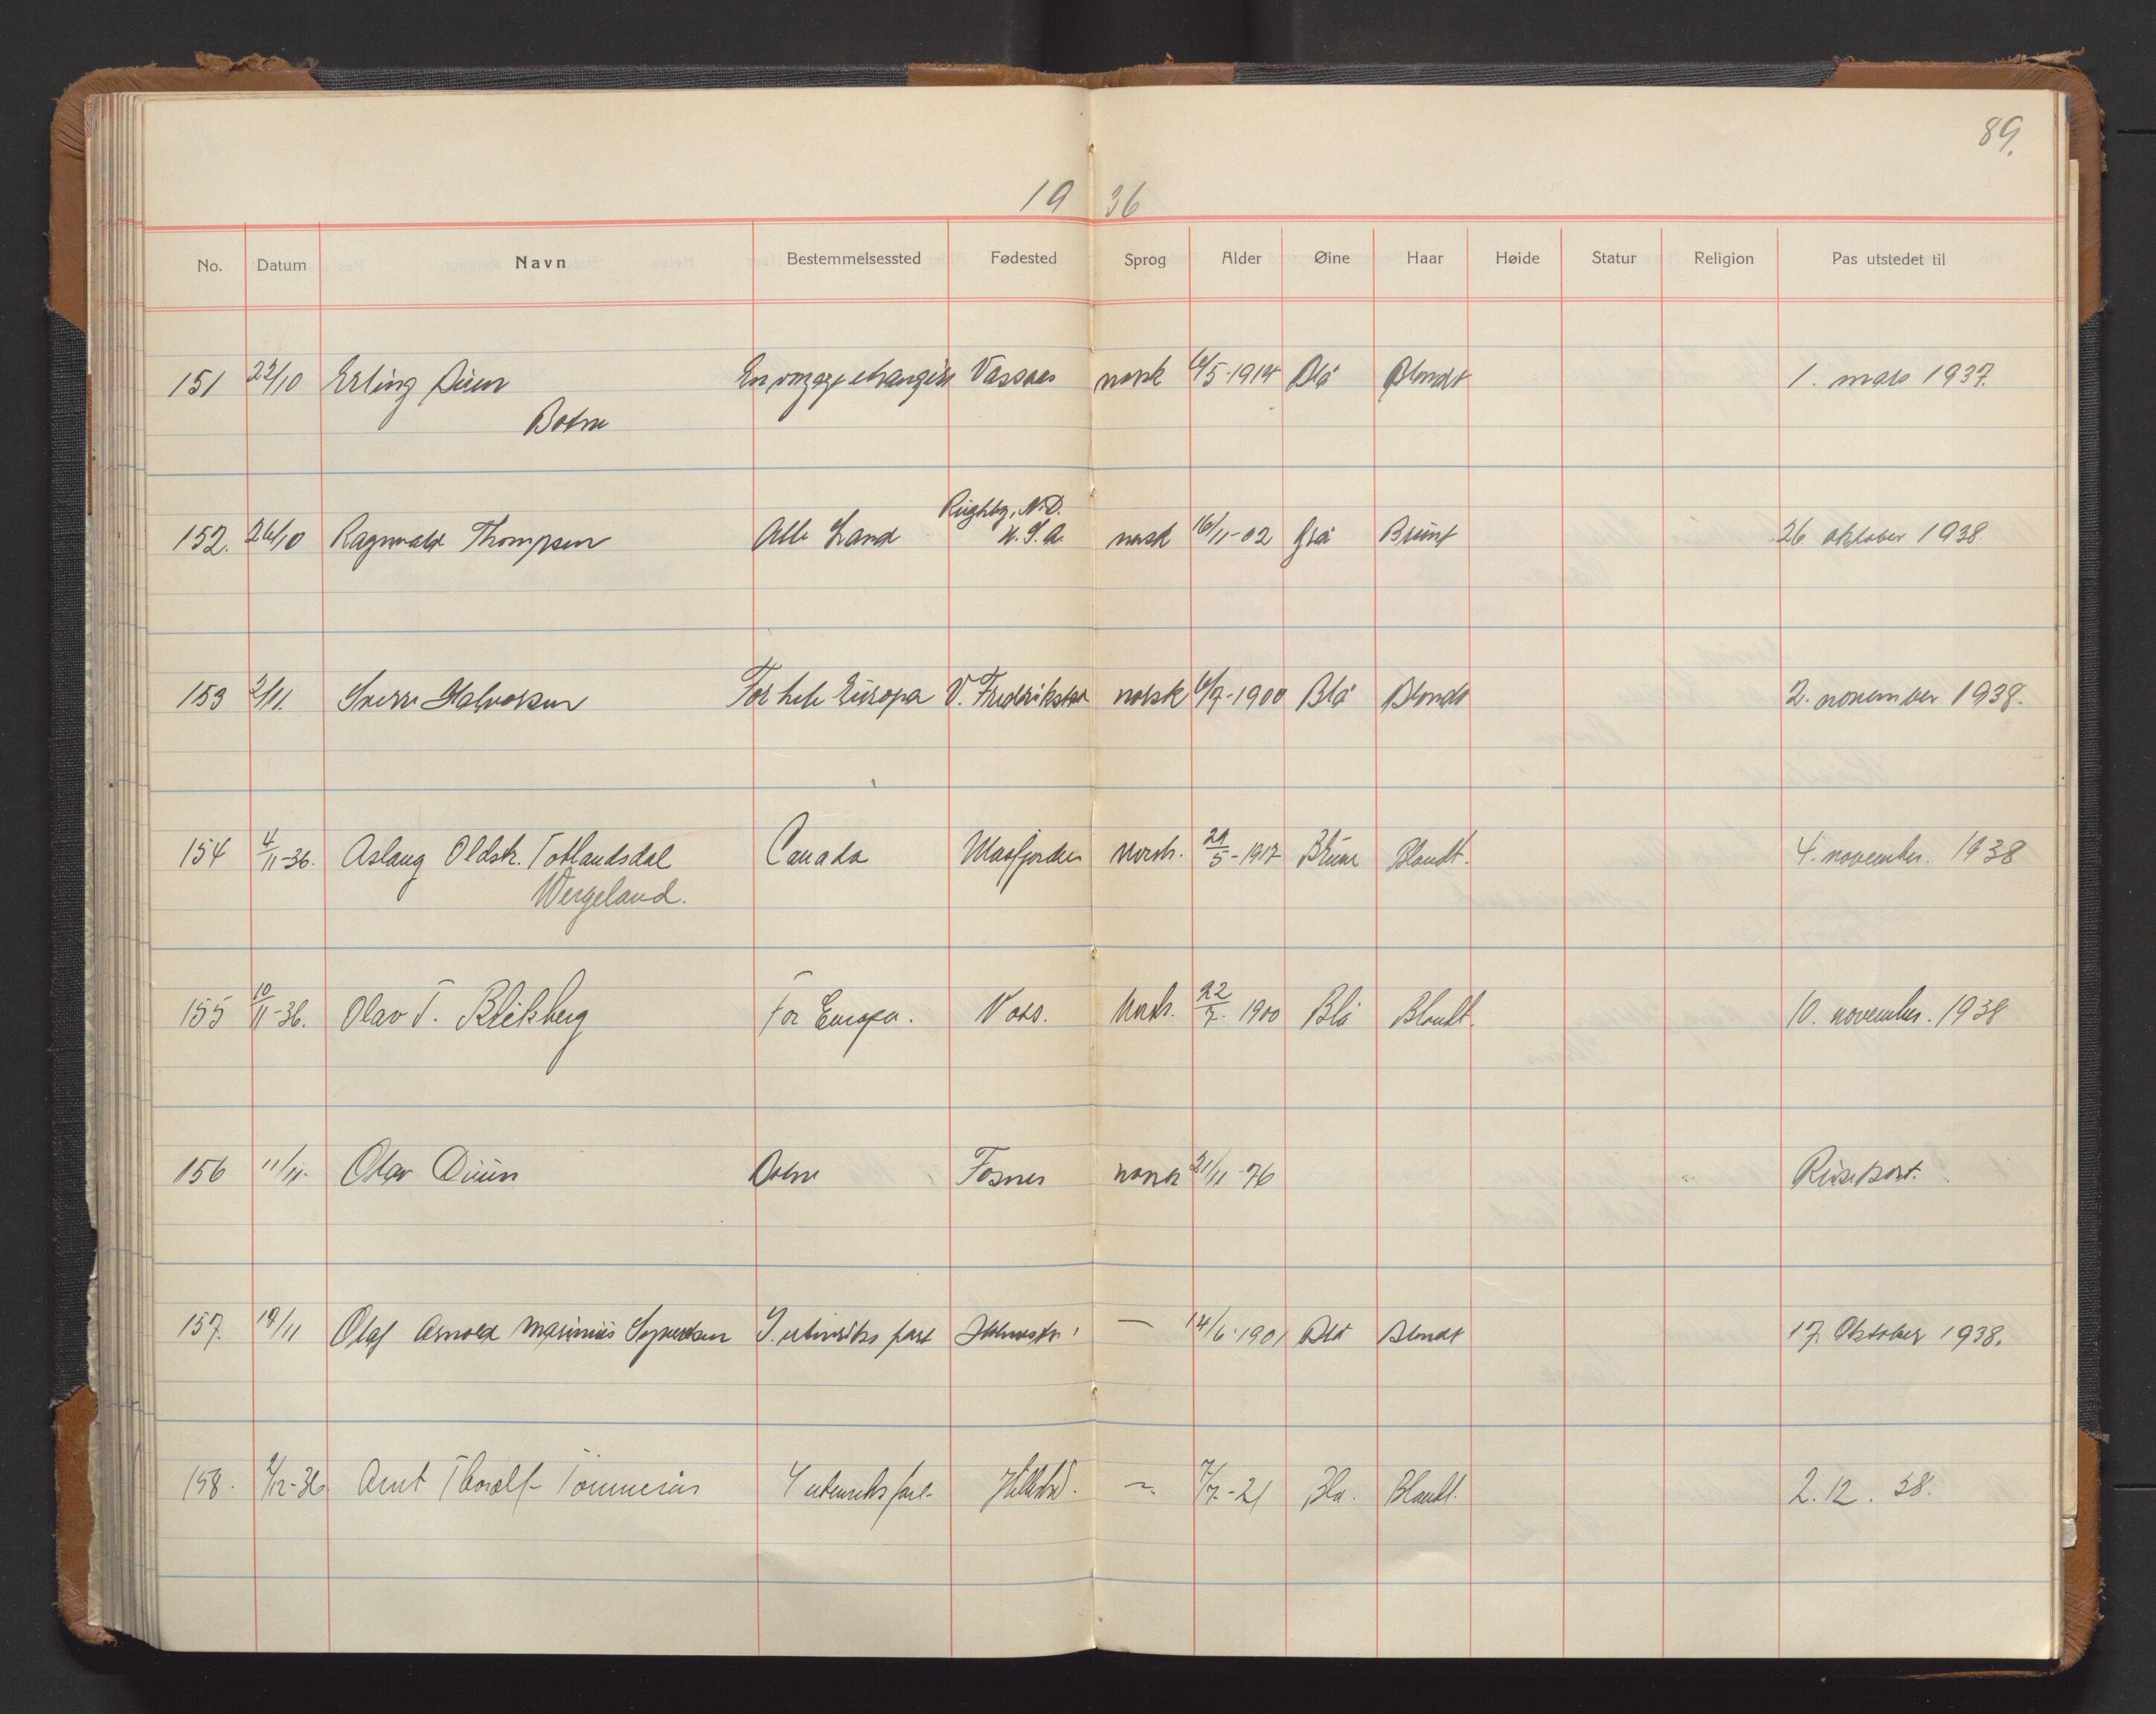 89.
19 36
No. Datum Navn Bestemmelsessted Fødested Sprog Alder Øine Haar Høide Statur Religion Pas utstedet til
151 23/10 Erling Duun En voyage Vassaas norsk 6/5-1914 Blå Blondt 1. mars 1937.
Botne
Rughby, N.D.
152. 26/10 Ragnvald Thompsen Alle Land U.S.A. norsk 16/11-02 Grå Brunt 26. oktober 1938.
153 2/11. Sverre Halvorsen For hele Europa V. Fredrikstad norsk 6/7-1900 Blå Blondt 2. november 1938.
154 4/11-36. Aslaug Oldstr. Totlandsdal Canada Masfjorden Norsk. 29/5-1917 Brune Blondt. 4. november. 1938
Wergeland.
155 10/11-36. Olav T. Blikberg For Europa. Voss. Norsk. 22/7-1900 Blå Blondt. 10. november. 1938
156 11/11. Olav Duun Botne Fosnes norsk 21/11-76 Reisekort.
157. 19/11 Olaf Arnold Marinius I utenriks fart — 14/6-1901 Blå Blondt 17. Oktober 1938.
158. 2/12-36 Arnt Thoralf I utenriks fart Hillestad. — 7/7-21 Bla. Blondt. 2.12.38.